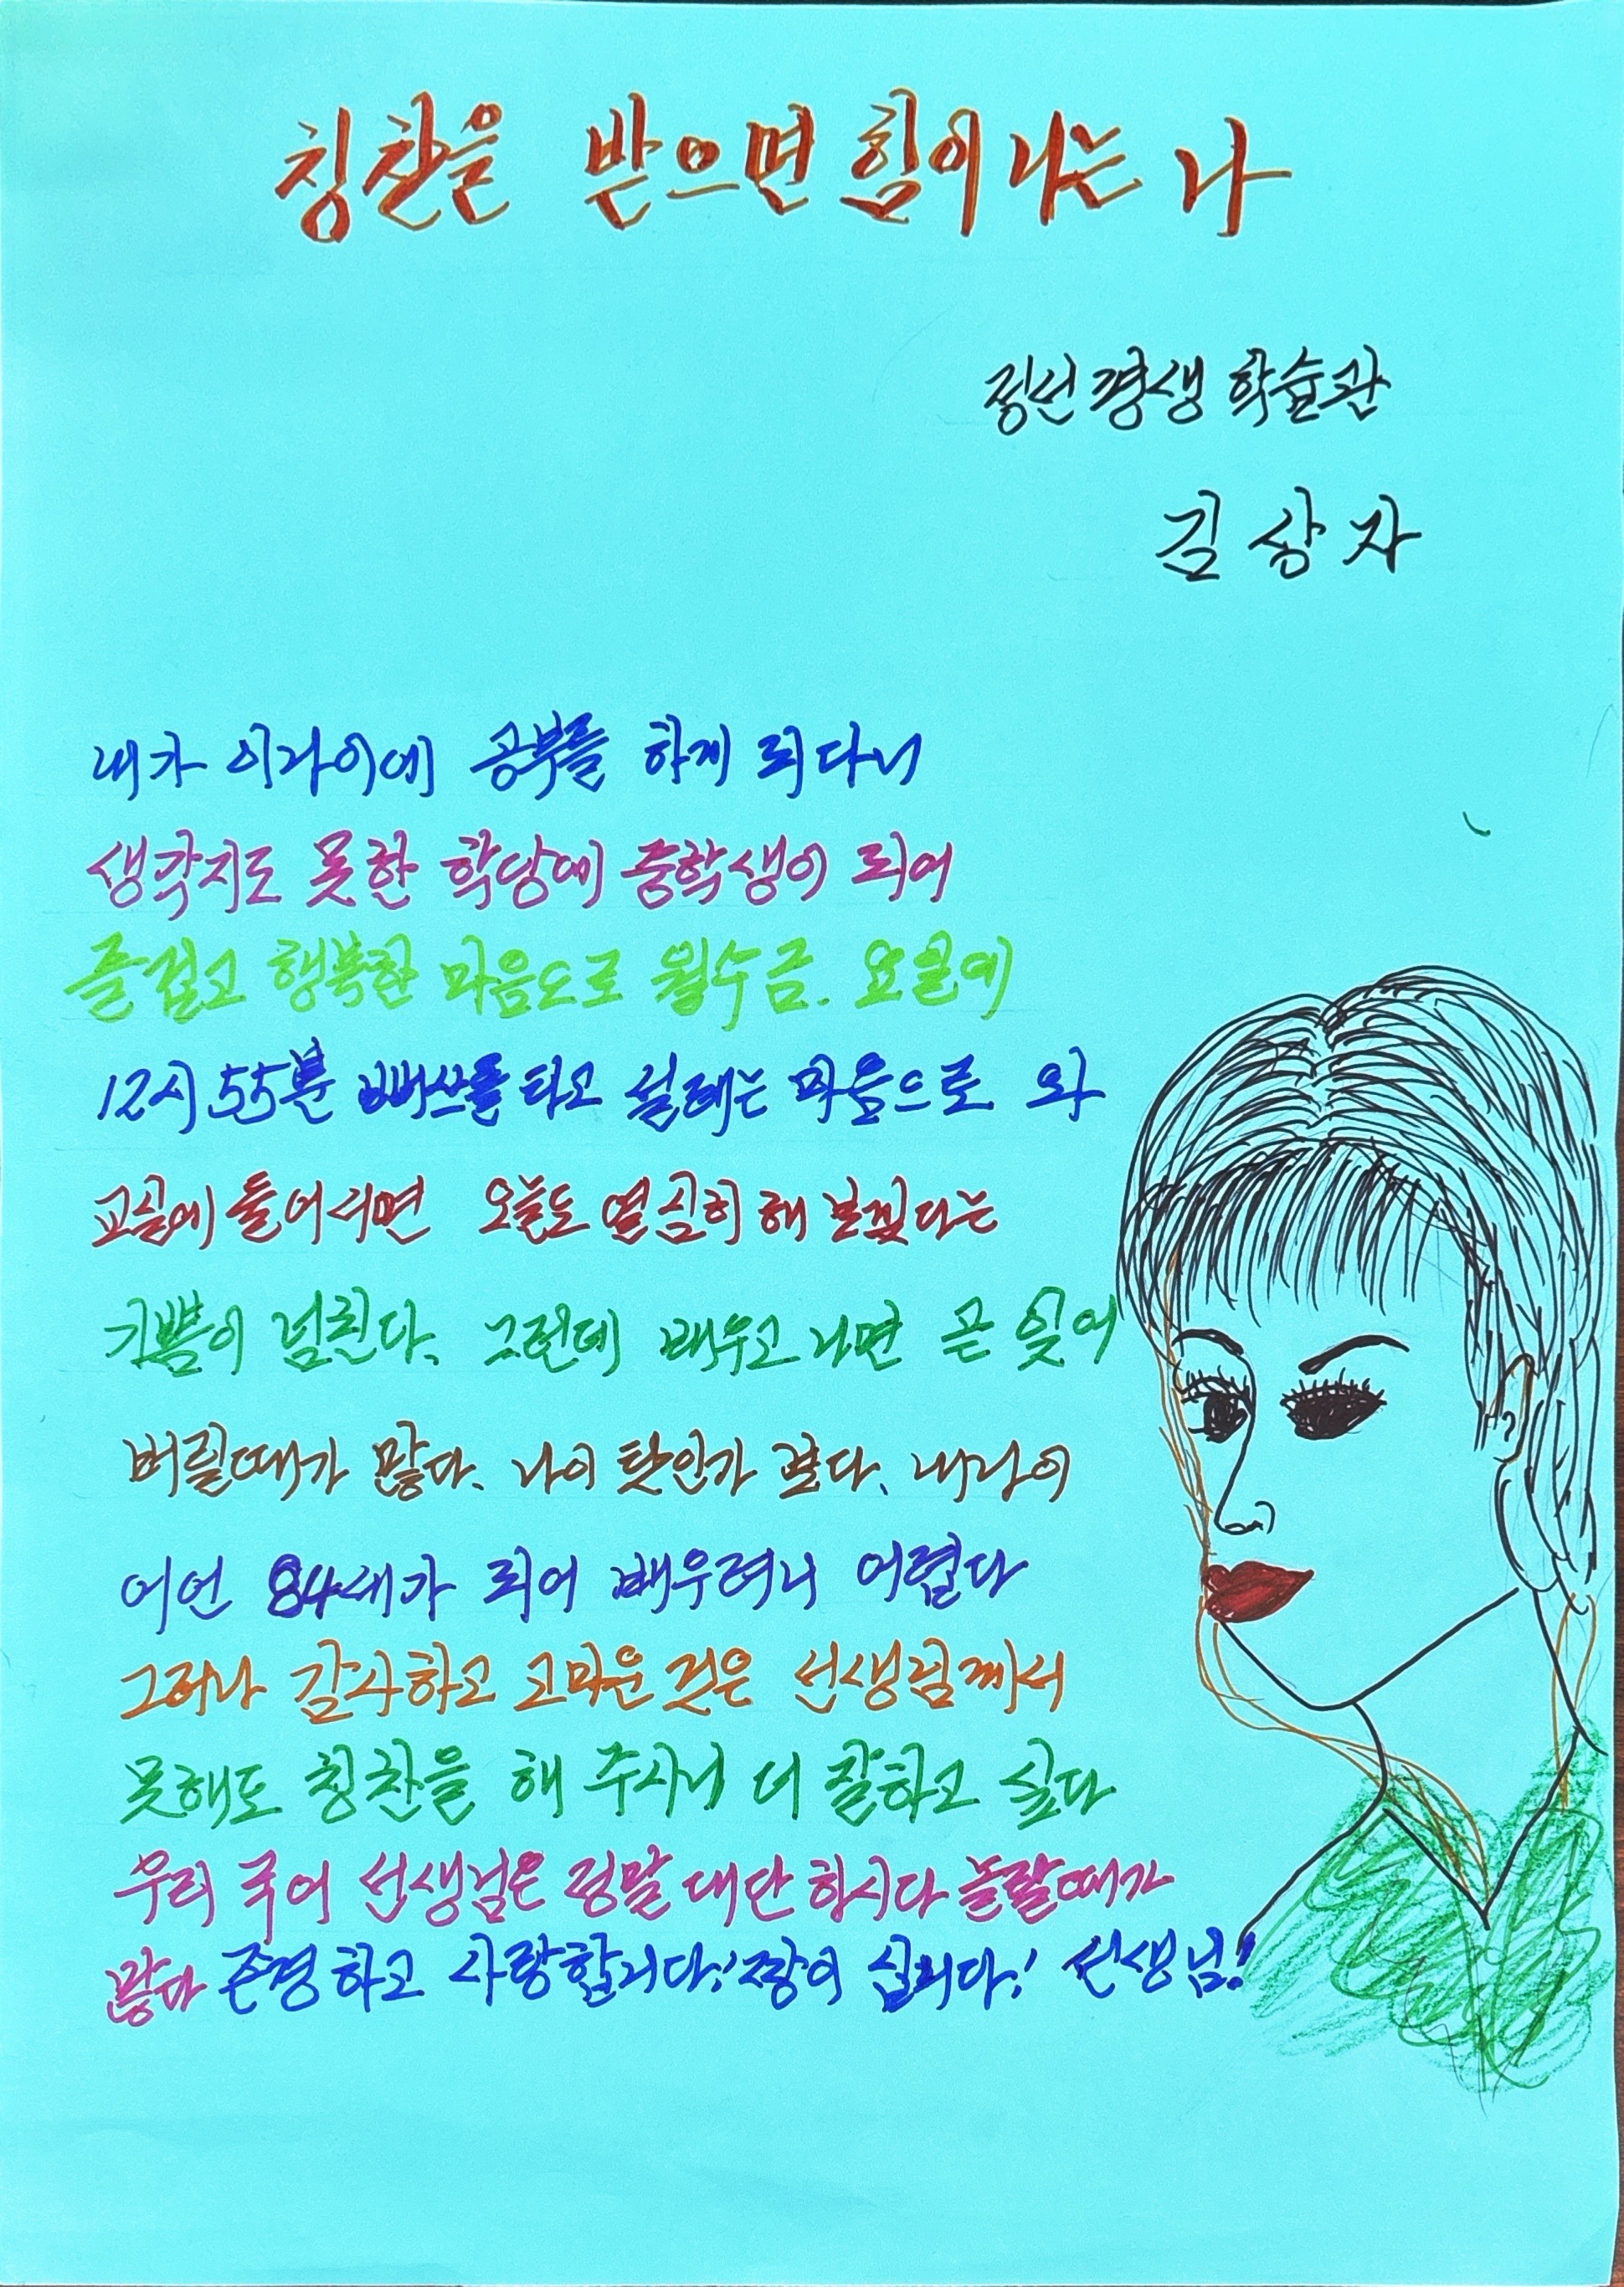 칭찬을 받으면 힘이 나는 나
정선 평생 학습관
김 상 자
내가 이 나이에 공부를 하게 되다니
생각지도 못한 학당에 중학생이 되어
즐겁고 행복한 마음으로 월수금. 요일에
12시 55분 뻐쓰를 타고 설레는 마음으로 와
교실에 들어서면 오늘도 열심히 해 보겠다는
기쁨이 넘친다. 그런데 배우고 나면 곧 잊어
버릴때가 많다. 나이 탓인가 같다. 내나이
어언 84세가 되어 배우려니 어렵다
그러나 감사하고 고마운 것은 선생님께서
못해도 칭찬을 해 주시니 더 잘하고 싶다
우리 국어 선생님은 정말 대단하시다 놀랄때가
많다 존경하고 사랑합니다! 짱이 십니다! 선생님!